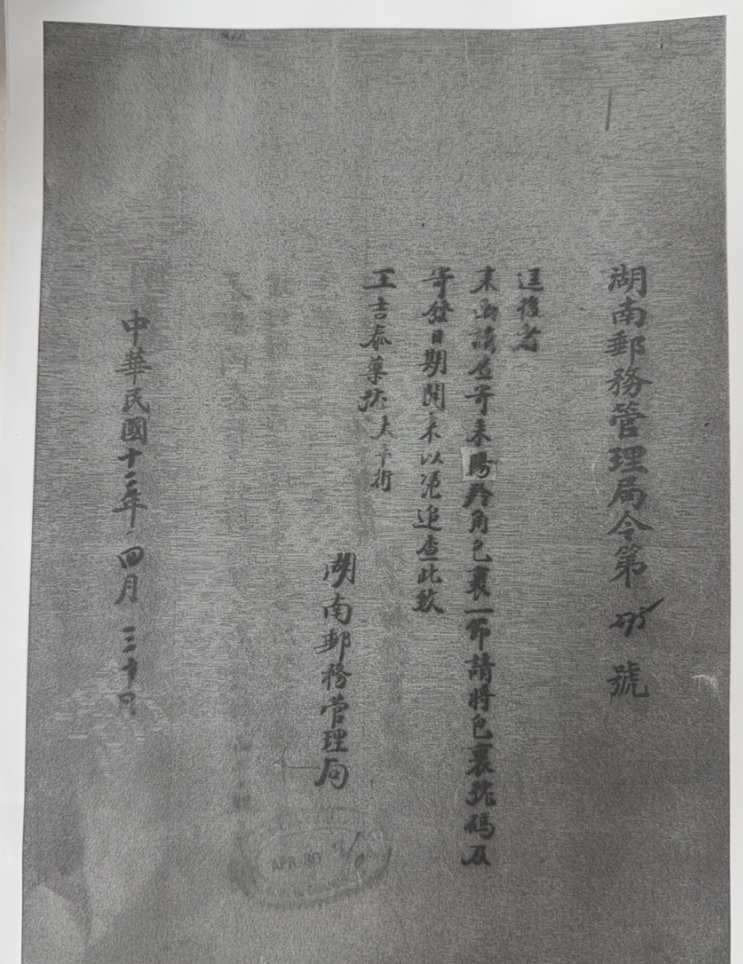 湖南郵務管理局令第 號
逕復者
來函請查寄耒陽羚角包裹一節請將包裹號碼及
寄發日期開來以憑追查此致
王吉泰藥號太平街
湖南郵務管理局
中華民國十二年四月三十日
APR 30